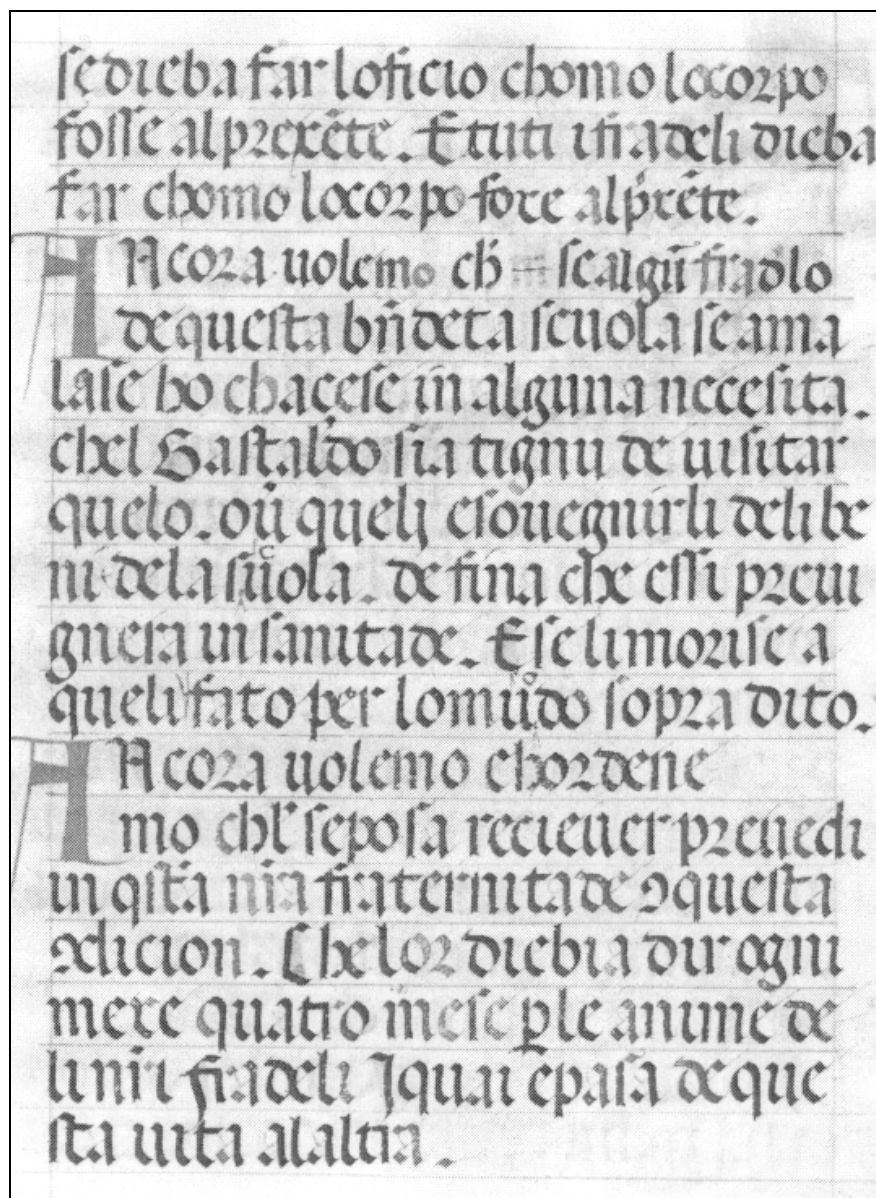 se dieba far loficio chomo lo corpo
fosse al prexẽte. E tuti i fradeli dieba
far chomo lo corpo fore al p̃xẽte.
ANcora uolemo ch̃ se algũ fradlo
de questa bñdeta scuola se ama
lase ho chaçese in alguna necesita.
chel Gastaldo sia tignu de uisitar
quelo. oũ queli e souegnirli de li be
ni de la scuola. de fina che essi preui
gnera in sanitade. E se li morise a
queli fato per lo mũdo sopra dito.
ANcora uolemo e hordene
mo chel se posa reciever preuedi
in q̃sta nr̃a fraternitade 9 questa
9dicion. Che lor diebia dir ogni
mexe quatro mese p̱ le anime de
li nr̃i fradeli I quai e pasa de que
sta uita al altra.